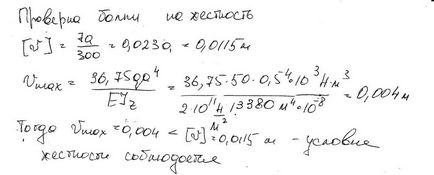 Проверка балки на жесткость
[v] = 7a/300 = 0,023a = 0,0115 м
Vmax = 36,75qa⁴/EJz = 36,75·50·0,5⁴·10³ Н·м³/2·10¹¹ Н/м² 13380 м⁴·10⁻⁸ = 0,004 м
Тогда Vmax = 0,004 < [v] = 0,0115 м - условие
жесткости соблюдается